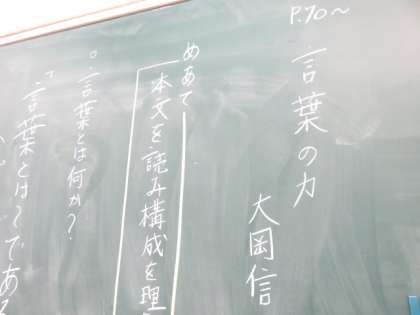 P.70～
言葉の力
大岡信
めあて
本文を読み構成を理
○言葉とは何か?
「言葉とは～である